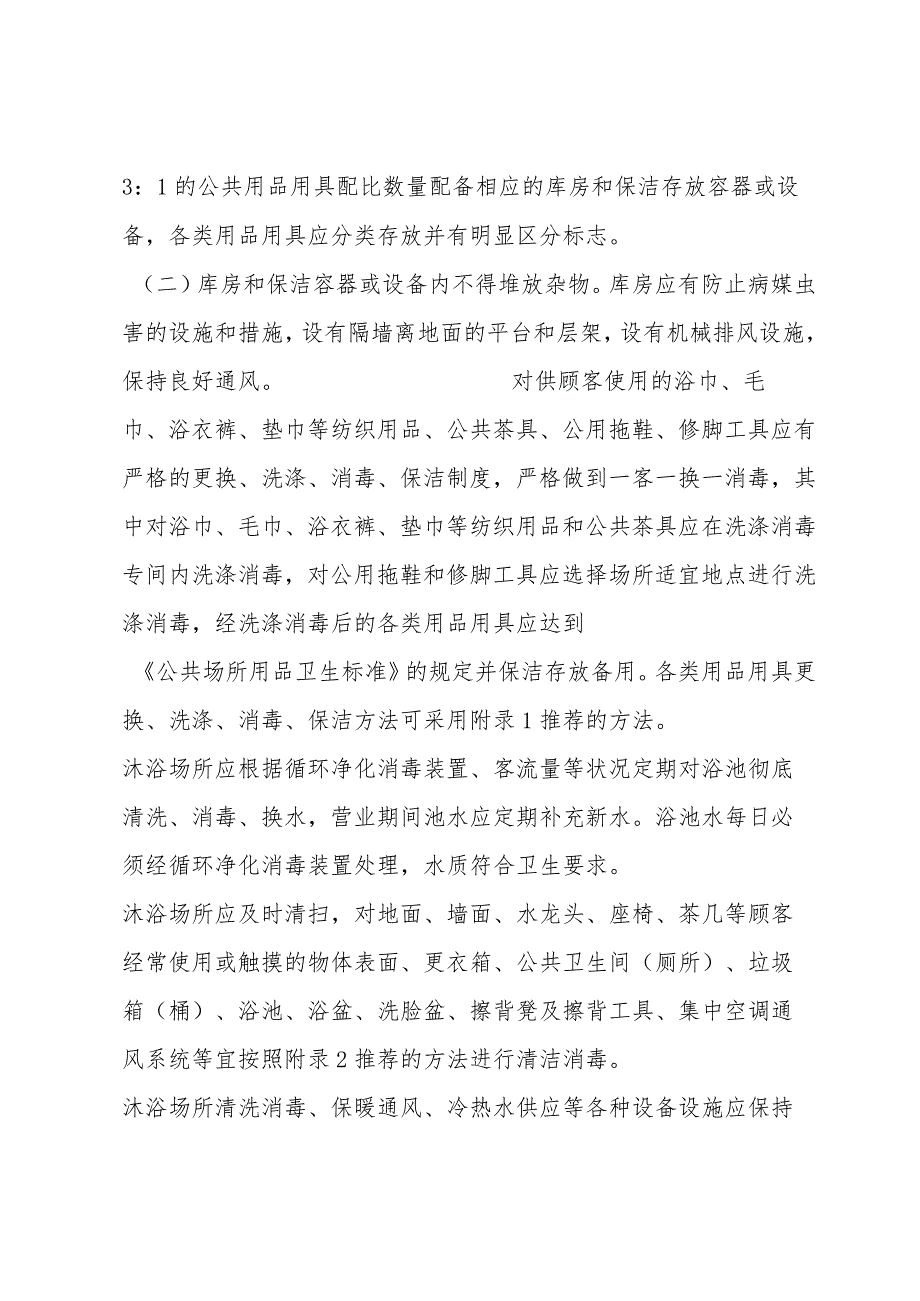 3：1的公共用品用具配比数量配备相应的库房和保洁存放容器或设
备，各类用品用具应分类存放并有明显区分标志。
（二）库房和保洁容器或设备内不得堆放杂物。库房应有防止病媒虫
害的设施和措施，设有隔墙离地面的平台和层架，设有机械排风设施，
保持良好通风。 对供顾客使用的浴巾、毛
巾、浴衣裤、垫巾等纺织用品、公共茶具、公用拖鞋、修脚工具应有
严格的更换、洗涤、消毒、保洁制度，严格做到一客一换一消毒，其
中对浴巾、毛巾、浴衣裤、垫巾等纺织用品和公共茶具应在洗涤消毒
专间内洗涤消毒，对公用拖鞋和修脚工具应选择场所适宜地点进行洗
涤消毒，经洗涤消毒后的各类用品用具应达到
《公共场所用品卫生标准》的规定并保洁存放备用。各类用品用具更
换、洗涤、消毒、保洁方法可采用附录1推荐的方法。
沐浴场所应根据循环净化消毒装置、客流量等状况定期对浴池彻底
清洗、消毒、换水，营业期间池水应定期补充新水。浴池水每日必
须经循环净化消毒装置处理，水质符合卫生要求。
沐浴场所应及时清扫，对地面、墙面、水龙头、座椅、茶几等顾客
经常使用或触摸的物体表面、更衣箱、公共卫生间（厕所）、垃圾
箱（桶）、浴池、浴盆、洗脸盆、擦背凳及擦背工具、集中空调通
风系统等宜按照附录2推荐的方法进行清洁消毒。
沐浴场所清洗消毒、保暖通风、冷热水供应等各种设备设施应保持